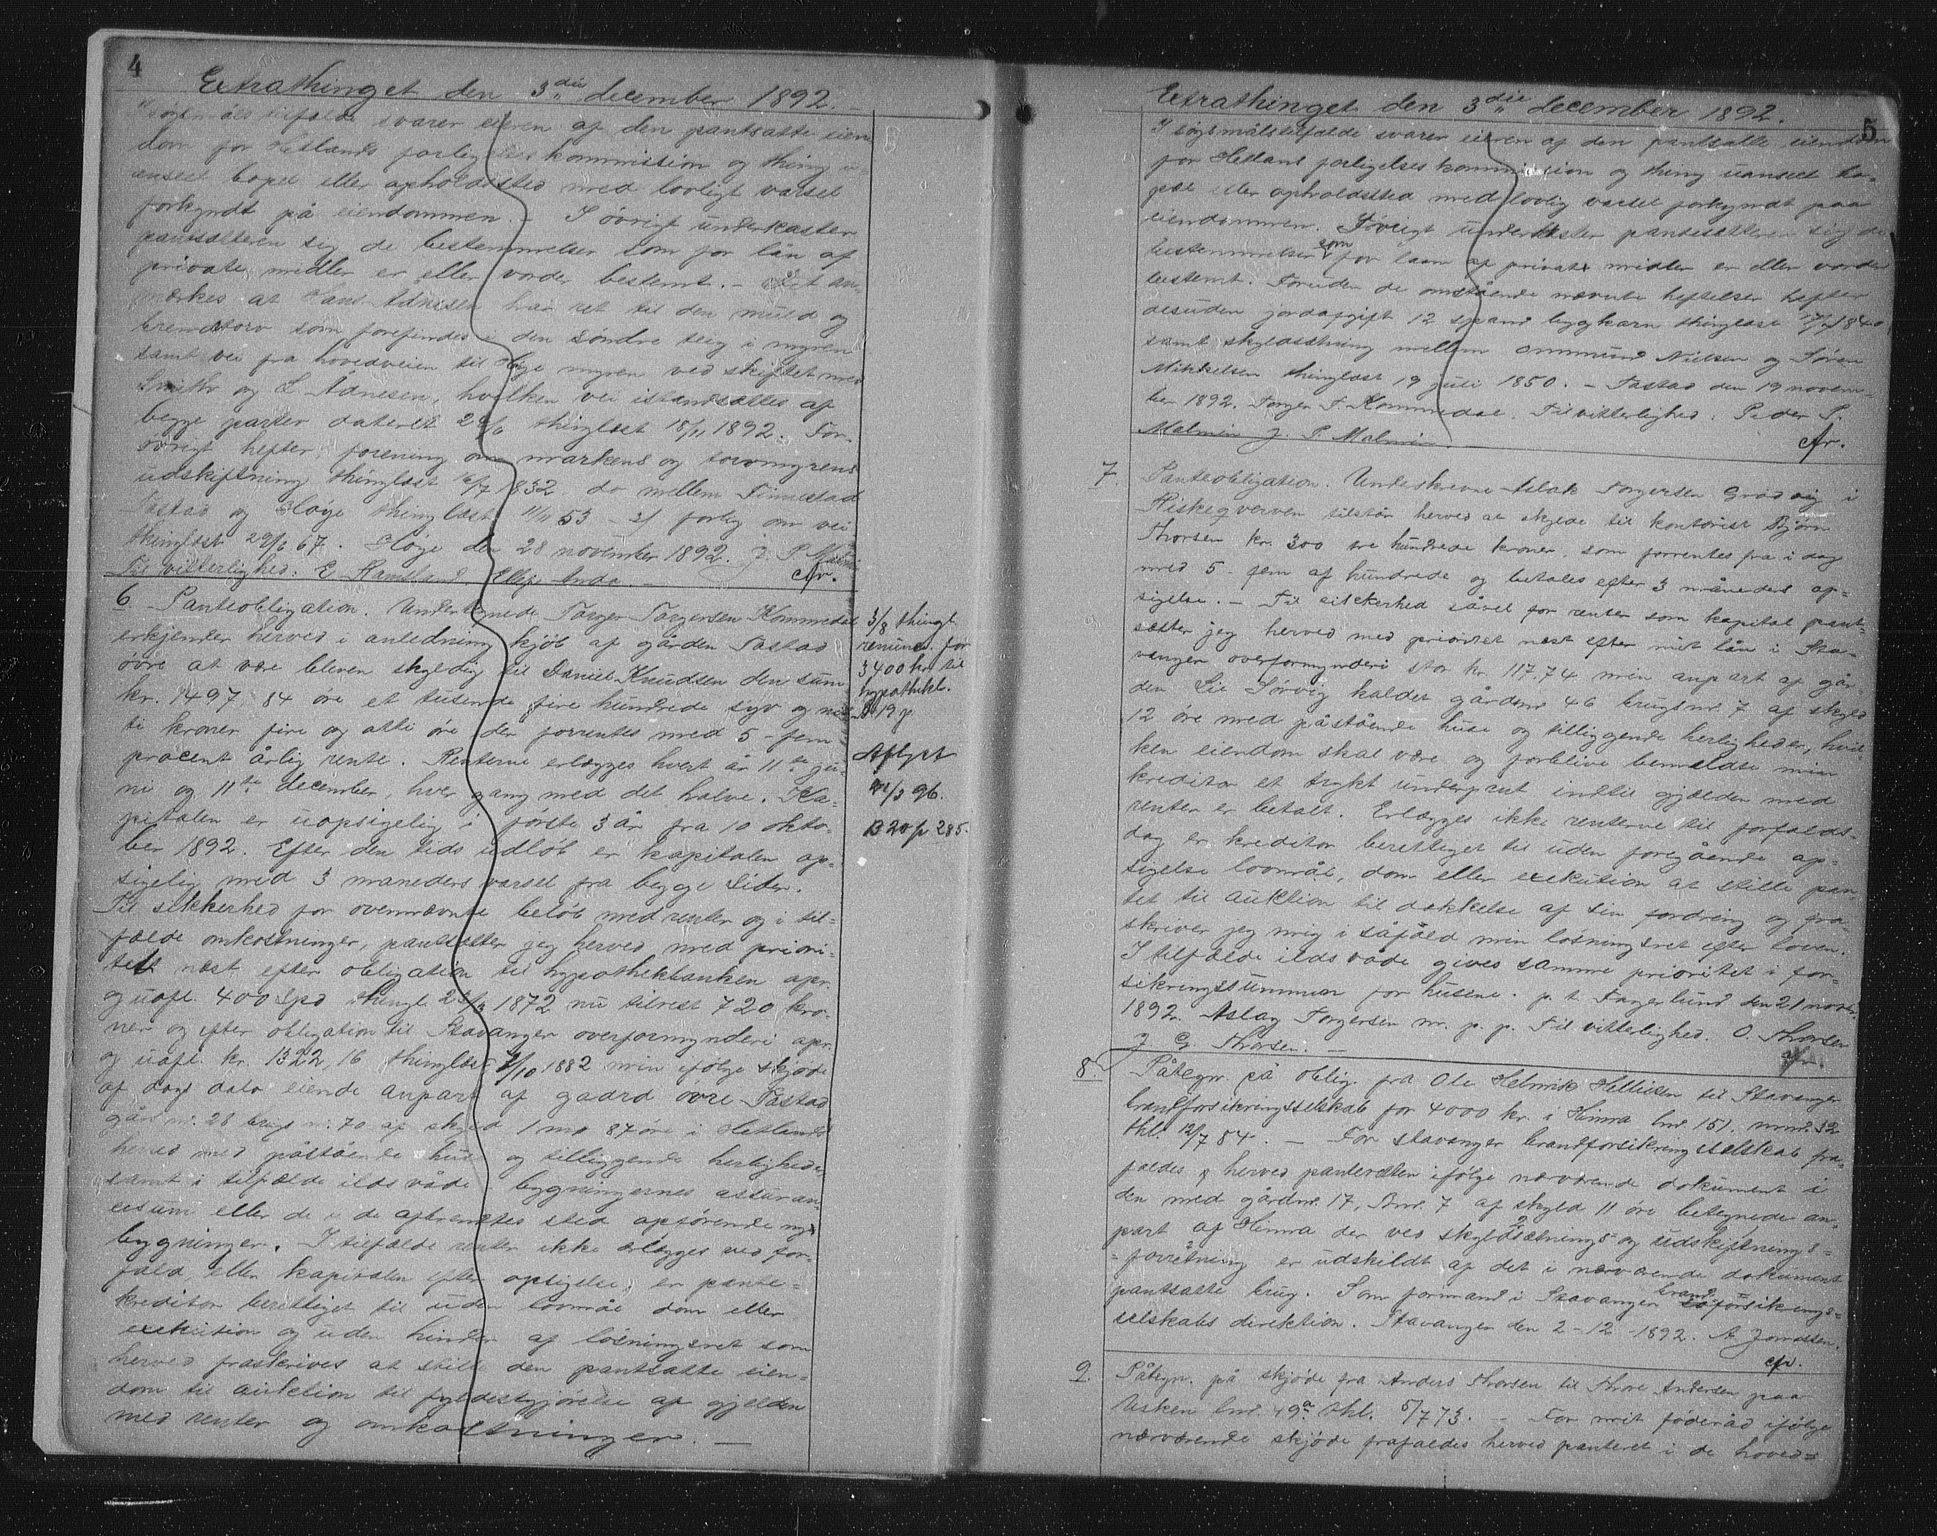 4
Extrathinget den 3die december 1892.
søgsmåls tilfælde svarer eieren af den pantsatte eien
dom for Hetlands forligelseskommission og thing u-
anseet bopæl eller opholdssted med lovligt varsel
forkyndt på eiendommen. – I øvrigt underkaster
pantsætteren sig de bestemmelser som for lån af
private midler er eller vorder bestemt. – Det an-
mærkes at Hans Adnesen har ret til den muld og
brændtorv som forefindes i den søndre teig i myren
samt vei fra hovedveien til Høge myren ved skiftet med
Smith og L. Adnesen, hvilken vei istandsættes af
begge parter dateret 29/6 thinglæst 18/11 1892. For-
øvrigt hefter forening om markens og torvmyrens
udskiftning thinglæst 16/7 1832 do mellem Finnestad
Tastad og Høge thinglæst 11/11 53 – forlig om vei
thinglæst 29/6 67. Høge den 28 november 1892. J. P. Malmin
Til vitterlighed: E. Ramsland Ellef Anda. – cfr.
6 Panteobligation. Undertegnede Torger Torgersen Kommedal
erkjender herved i anledning kjøb af gården Tastad
øvre at være bleven skyldig til Daniel Knudsen den sum
kr. 1497, 84 øre et tusende fire hundrede syv og nit-
ti kroner fire og otti øre der forrentes med 5 – fem
procent årlig rente. Renterne erlægges hvert år 11te ju-
ni og 11te december, hver gang med det halve. Ka-
pitalen er uopsigelig i første 3 år fra 10 okto-
ber 1892. Efter den tids udløb er kapitalen op-
sigelig med 3 maneders varsel fra begge Sider.
Til sikkerhed for ovennævnte beløb med renter og i til-
fælde omkostninger, pantsætter jeg herved med priori-
tet næst efter obligation til hypothekbanken opr.
og uopl. 400 Spd thingl. 1872 nu tilrest 720 kro-
ner og efter obligation til Stavanger overformynderi opr.
og uopl. kr. 1322, 16 thinglæst 1882 min ifølge skjøde
af dags dato eiende anpart af gaard øvre Tastad
gårds nr. 28 brugs nr. 70 af skyld 1 mrk 87 øre i Hetlands
herred med påstående huse og tilliggende herligheder
samt i tilfælde ildsvåde bygningernes assuran-
cesum eller de i de afbrændtes sted opførende nye
bygninger. I tilfælde renter ikke erlægges ved for-
fald, eller kapitalen efter opsigelse, er pante-
kreditor berettiget til uden lovmål dom eller
exekution og uden hinder af løsningsret som
herved fraskrives at stille den pantsatte eien-
dom til auktion til fyldestgjørelse af gjælden
med renter og omkostninger. –
3/8 thingl.
for
3400 kr til
hypothekb.
B 19 p
Aflyst
/3 96.
B 20 p 285.
5
Extrathinget den 3die december 1892.
I søgsmålstilfælde svarer eieren af den pantsatte eiendom
for Hetlans forligelseskommission og thing uanseet bo-
pæl eller opholdssted med lovlig varsel forkyndt paa
eiendommen. Iøvrigt underkaster pantesætteren sig de
bestemmelser som for laan af private midler er eller vorder
bestemt. Foruden de omstående nævnte heftelser hefter
desuden jordafgift 12 spand bygkorn thinglæst 1840
samt skyldsætning mellem Ommund Nielsen og Søren
Mikkelsen thinglæst 19 juli 1850. – Tastad den 19 novem-
ber 1892. Torger T. Kommedal. Til vitterlighed: Peder P.
Malmin J. P. Malmin cfr.
7 Panteobligation. Undeskrevne Aslak Torgersen Grødsvig i
Riskeqverven tilstår herved at skylde til kontorist Bjørn
Thorsen kr. 300 tre hundrede kroner, som forrentes fra i dag
med 5 – fem af hundrede og betales efter 3 måneders op-
sigelse. – Til sikkerhed såvel for renter som kapital pant-
sætter jeg herved med prioritet næst efter mit lån i Sta-
vanger overformynderi stor kr. 117.74 min anpart af går-
den Lie Sørvig kaldet gårdsnr. 46 brugsnr. 7 af skyld
12 øre med påstående huse og tilliggende herligheder, hvil-
ken eiendom skal være og forblive bemeldte min
kreditor et trykt underpant indtil gjælden med
renter er betalt. Erlægges ikke renterne til forfalds-
dag er kreditor berettiget til uden foregående op-
sigelse lovmål, dom eller exekution at stille pan-
tet til auktion til dækkelse af sin fordring og fra-
skriver jeg mig i såfald min løsningsret efter loven.
I tilfælde ildsvåde gives samme prioritet i for-
sikringssummen for husene. p. t. Fagerlund den 21 novbr.
1892. Aslag Torgersen m. p. p. Til vitterlighed. O. Thorsen
J G. Thorsen. – cfr.
8. Påtegn. på oblig. fra Ole Helmik Helliesen til Stavanger
brandforsikringsselskab for 4000 kr. i Himra lnr. 151. mnr. 32
thl. 12/7 84. – For Stavanger brandforsikringsselskab fra-
faldes herved panteretten ifølge nærværende dokument i
den med gårdnr. 17, Bnr. 7 af skyld 11 øre betegnede an-
part af Himra der ved skyldsætnings- og udskiftnings-
-forretning er udskildt af det i nærværende dokument
pantsatte brug. Som formand i Stavanger brandforsikrings-
selskabs direktion. Stavanger den 2-12-1892. A Jonassen.
cfr.
9. Påtegn. på skjøde fra Anders Thorsen til Thore Andersen paa
Usken lnr. 49a thl. 5/7 73. – For mit føderåd ifølge
nærværende skjøde frafaldes herved panteret i de hoved-